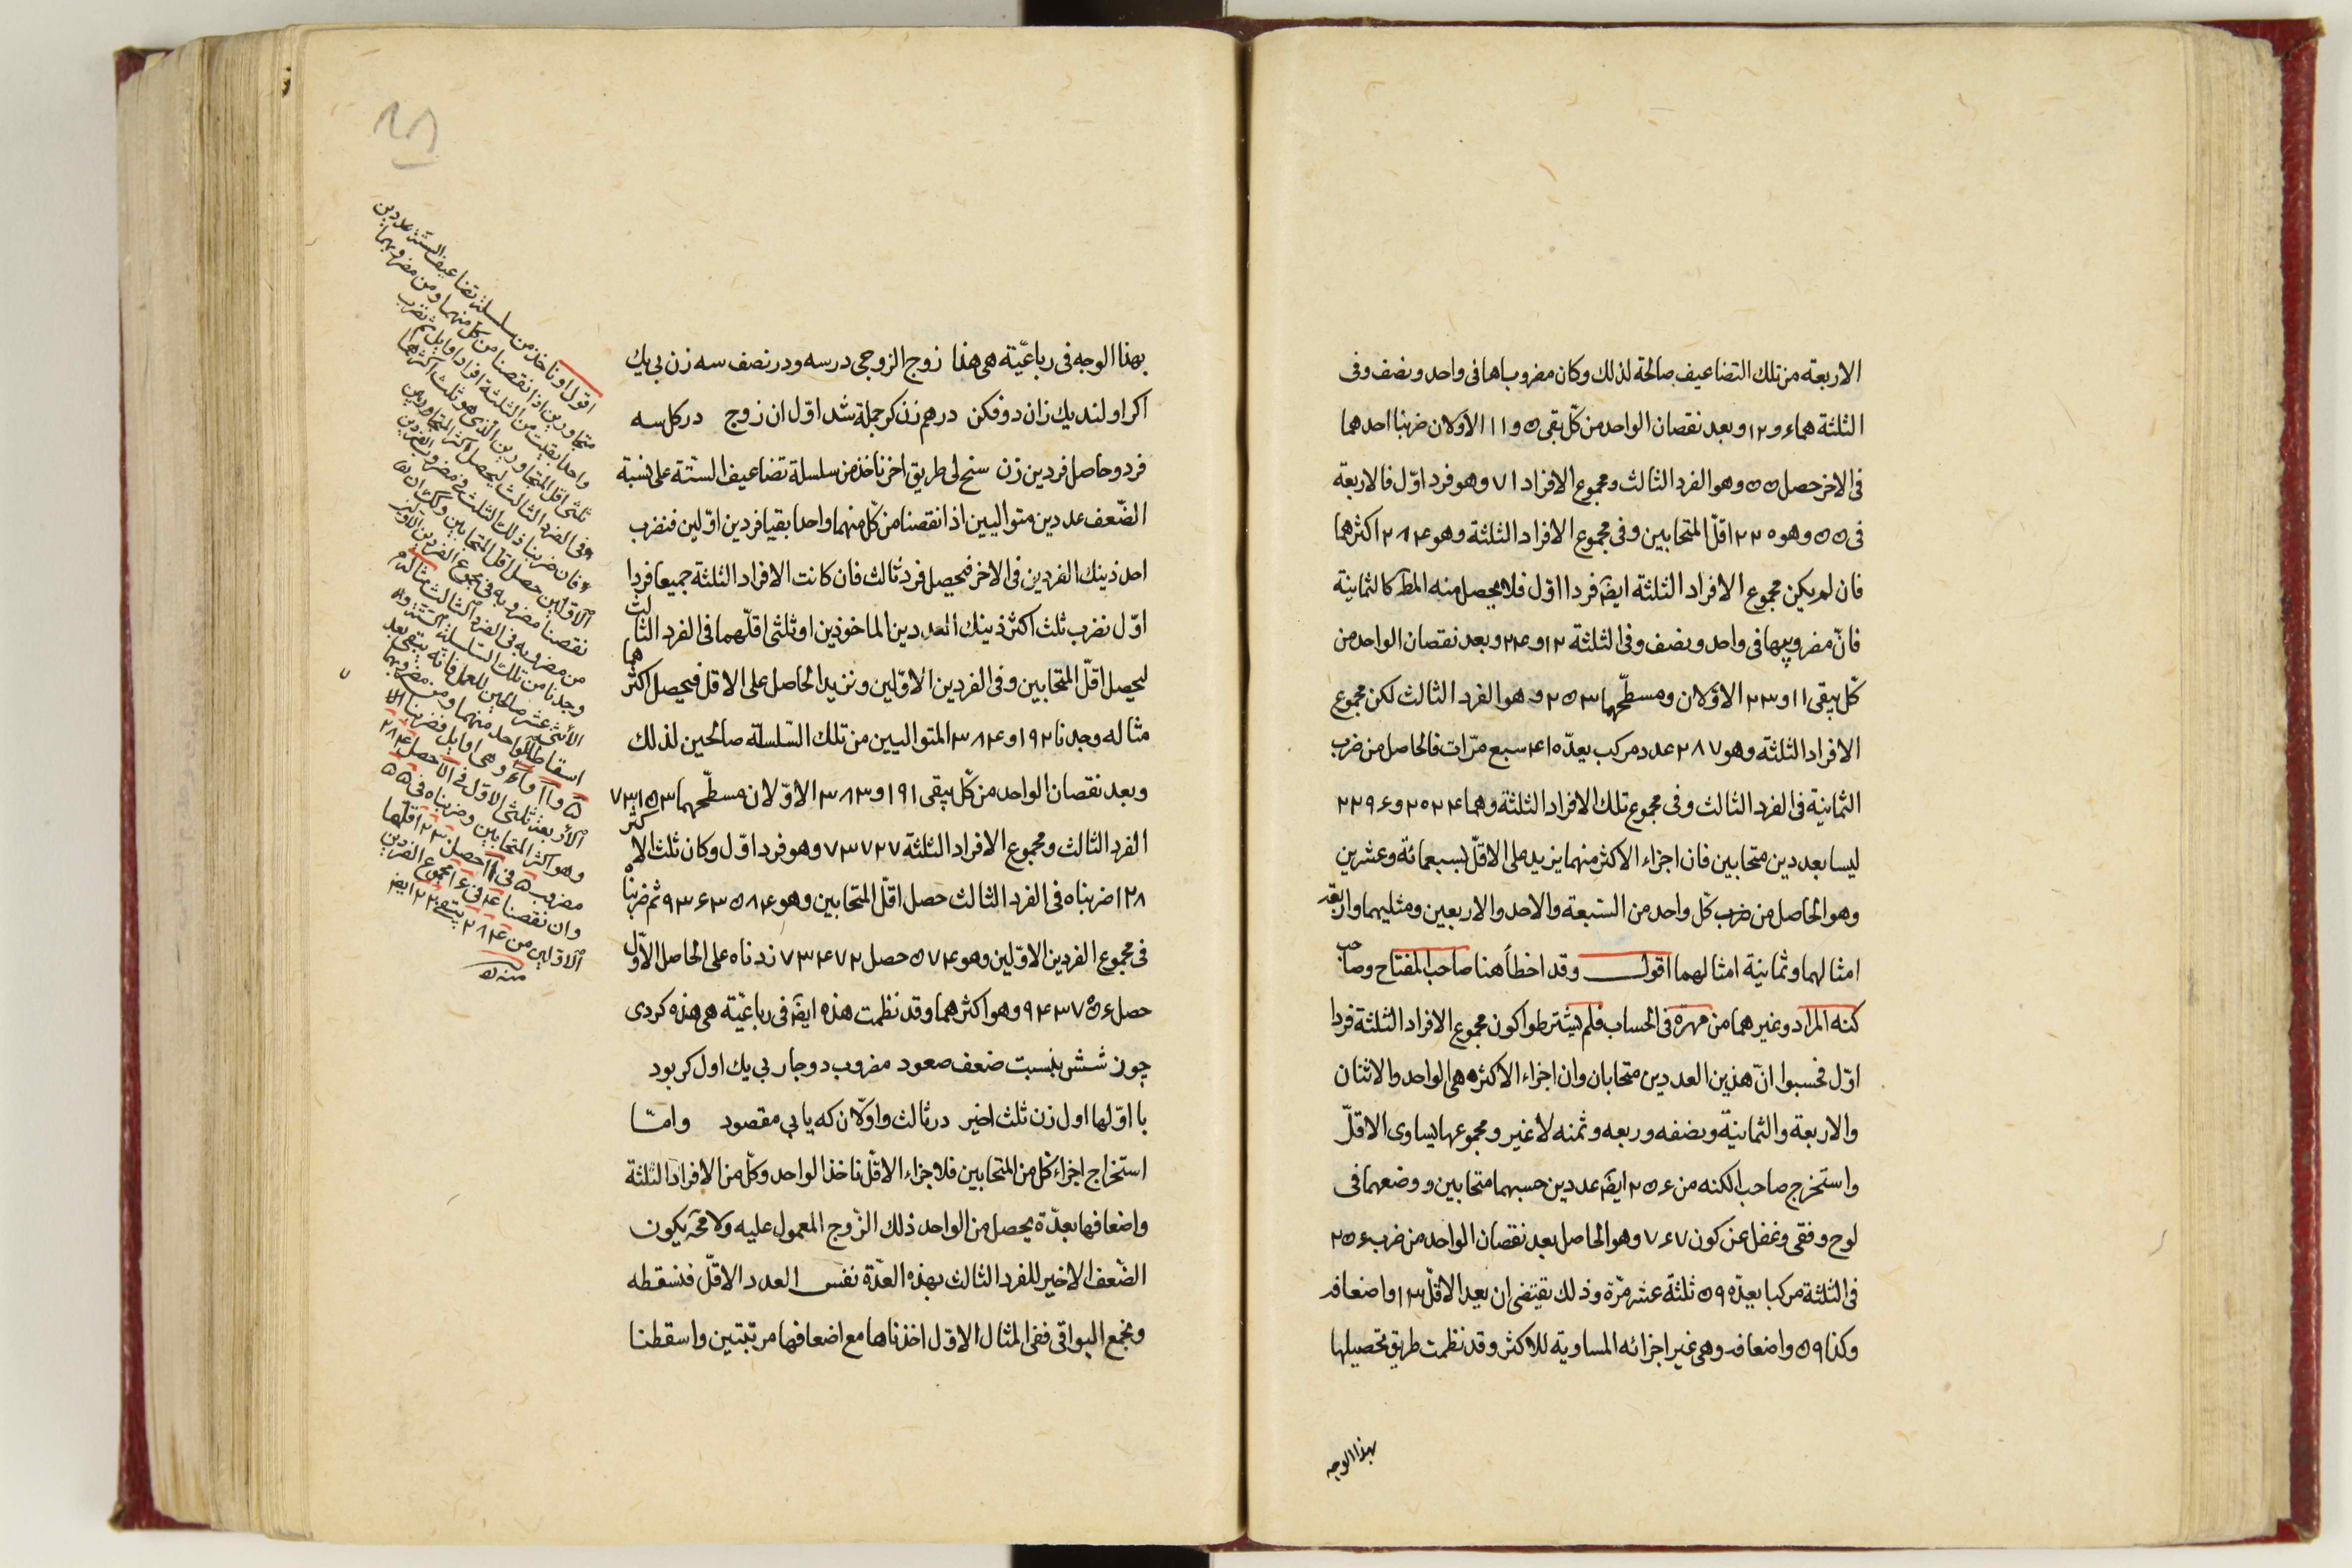 الاربعة من تلك التضاعيف صالحة لذلك وكان مضروباها فى واحد ونصف وفى
الثلثة هما ۶ و ۱۲ وبعد نقصان الواحد من كلّ بقى ۵ و ۱۱ الاوّلان ضربنا احدهما
فى الاخر حصل ۵۵ وهو الفرد الثالث ومجموع الافراد ۷۱ وهو فرد اوّل فالاربعة
فى ۵۵ وهو ۲۲۰ اقلّ المتحابين وفى مجموع الافراد الثلثة وهو ۲۸۴ اكثرهما
فان لم يكن مجموع الافراد الثلثة ايضَ فردا اوّل فلا يحصل منه المطَ كالثمانية
فانّ مضروبيها فى واحد ونصف وفى الثلثة ۱۲ و ۲۴ وبعد نقصان الواحد من
كلّ يبقى ۱۱ و ۲۳ الاوّلان ومسطّحهما ۲۵۳ وهو الفرد الثالث لكن مجموع
الافراد الثلثة وهو ۲۸۷ عدد مركب يعدّه ۴۱ سبع مرّات فالحاصل من ضرب
الثمانية فى الفرد الثالث وفى مجموع تلك الافراد الثلثة وهما ۲۰۲۴ و ۲۲۹۶
ليسا بعددين متحابين فان اجزاء الاكثر منهما يزيد على الاقلّ بسبعمائة وعشرين
وهو الحاصل من ضرب كلّ واحد من السّبعة والاحد والاربعين ومثليهما واربعة
امثالهما وثمانية امثالهما اقول وقد اخطأ هنا صاحب المفتاح وصاحب
كنه المراد وغيرهما من مهرة فى الحساب فلم يشترطوا كون مجموع الافراد الثلثة فردا
اوّل فحسبوا انّ هذين العددين متحابان وان اجزاء الاكثر هى الواحد والاثنان
والاربعة والثمانية ونصفه وربعه وثمنه لا غير ومجموعها يساوى الاقلّ
واستخرج صاحب الكنه من ۲۵۶ ايضَ عددين حسبهما متحابين ووضعهما فى
لوح وفقى وغفل عن كون ۷۶۷ وهو الحاصل بعد نقصان الواحد من ضرب ۲۵۶
فى الثلثة مركبا يعدّه ۵۹ ثلثة عشر مرّة وذلك يقتضى ان يعد الاقلّ ۱۳ واضعافه
وكذا ۵۹ واضعافه وهى غير اجزائه المساوية للاكثر وقد نظمت طريق تحصيلها
بهذا الوجه
بهذا الوجه فى رباعيّة هى هذا زوج الزوجى درسه ودر نصف سه زن بى يك
اكر اولند يك زان دو فكن درهم زن كر جملة شد اوّل ان زوج در كل سه
فرد وحاصل فردين زن سنح لى طريق اخر ناخذ من سلسلة تضاعيف السّتة على نسبة
الضّعف عددين متواليين اذا نقصنا من كلّ منهما واحدا بقيا فردين اوّلين فنضرب
احد ذينك الفردين فى الاخر فيحصل فرد ثالث فان كانت الافراد الثلثة جميعا فردا
اوّل نضرب ثلث اكثر ذينك العددين الماخوذين او ثلثى اقلّهما فى الفرد الثالث
ليحصل اقلّ المتحابين وفى الفردين الاوّلين ونزيد الحاصل على الاقل فيحصل اكثرهما
مثاله وجدنا ۱۹۲ و ۳۸۴ المتواليين من تلك السّلسلة صالحين لذلك
وبعد نقصان الواحد من كلّ يبقى ۱۹۱ و ۳۸۳ الاوّلان مسطّحهما ۷۳۱۵۳
الفرد الثالث ومجموع الافراد الثلثة ۷۳۷۲۷ وهو فرد اوّل وكان ثلث الاكثر
۱۲۸ ضربناه فى الفرد الثالث حصل اقلّ المتحابين وهو ۹۳۶۳۵۸۴ ثم ضربناه
فى مجموع الفردين الاوّلين وهو ۵۷۴ حصل ۷۳۴۷۲ زدناه على الحاصل الاوّل
حصل ۹۴۳۷۰۵۶ وهو اكثرهما وقد نظمت هذه ايضَ فى رباعيّة هى هذه كردى
چون شش بنسبت ضعف صعود مضروب دو جار بى يك اول كر بود
با اوّلها اول زن ثلث اخير در ثالث واوّلان كه يابى مقصود وامّا
استخراج اجزاء كلّ من المتحابين فلاجزاء الاقلّ ناخذ الواحد وكلّ من الافراد الثلثة
واضعافها بعدّة يحصل من الواحد ذلك الزّوج المعمول عليه ولا محَ يكون
الضّعف الاخير للفرد الثالث بهذه العدّة نفس العدد الاقلّ فنسقطه
ونجمع البواقى ففى المثال الاوّل اخذناها مع اضعافها مرتبتين واسقطنا
اقول او ناخذ من سلسلة تضاعيف السّتة عددين
متجاورين اذا نقصنا من كلّ منهما ومن مضروبهما
واحدا بقيت من الثلثة افراد اوايل ثم نضرب
ثلثى اقل المتجاورين الّذى هو ثلث اكثرهما
فى الفرد الثالث ليحصل اكثر المتحابين
فان ضربنا ذلك الثلث فى مضروب الفردين
الاوّلين حصل اقل المتحابين وكذا ان
نقصنا مضروبه فى مجموع الفردين الاولين
من مضروبه فى الفرد الثالث مثاله
وجدنا من تلك السّلسلة السّتة و
الاثنى عشر صالحين للعمل فانه يبقى بعد
اسقاط الواحد منهما ومن مضروبهما
۵ و ۱۱ و ۷۱ وهى اوايل فضربنا
الاربعة ثلثى الاوّل فى ۷۱ حصل ۲۸۴
وهو اكثر المتحابين وضربناه فى ۵۵
مضروب ۵ فى ۱۱ حصل ۲۲۰ اقلّها
وان نقصنا ۴ فى ۱۶ مجموع الفردين
الاوّلين من ۲۸۴ يبقى ۲۲۰ ايضَ
منه